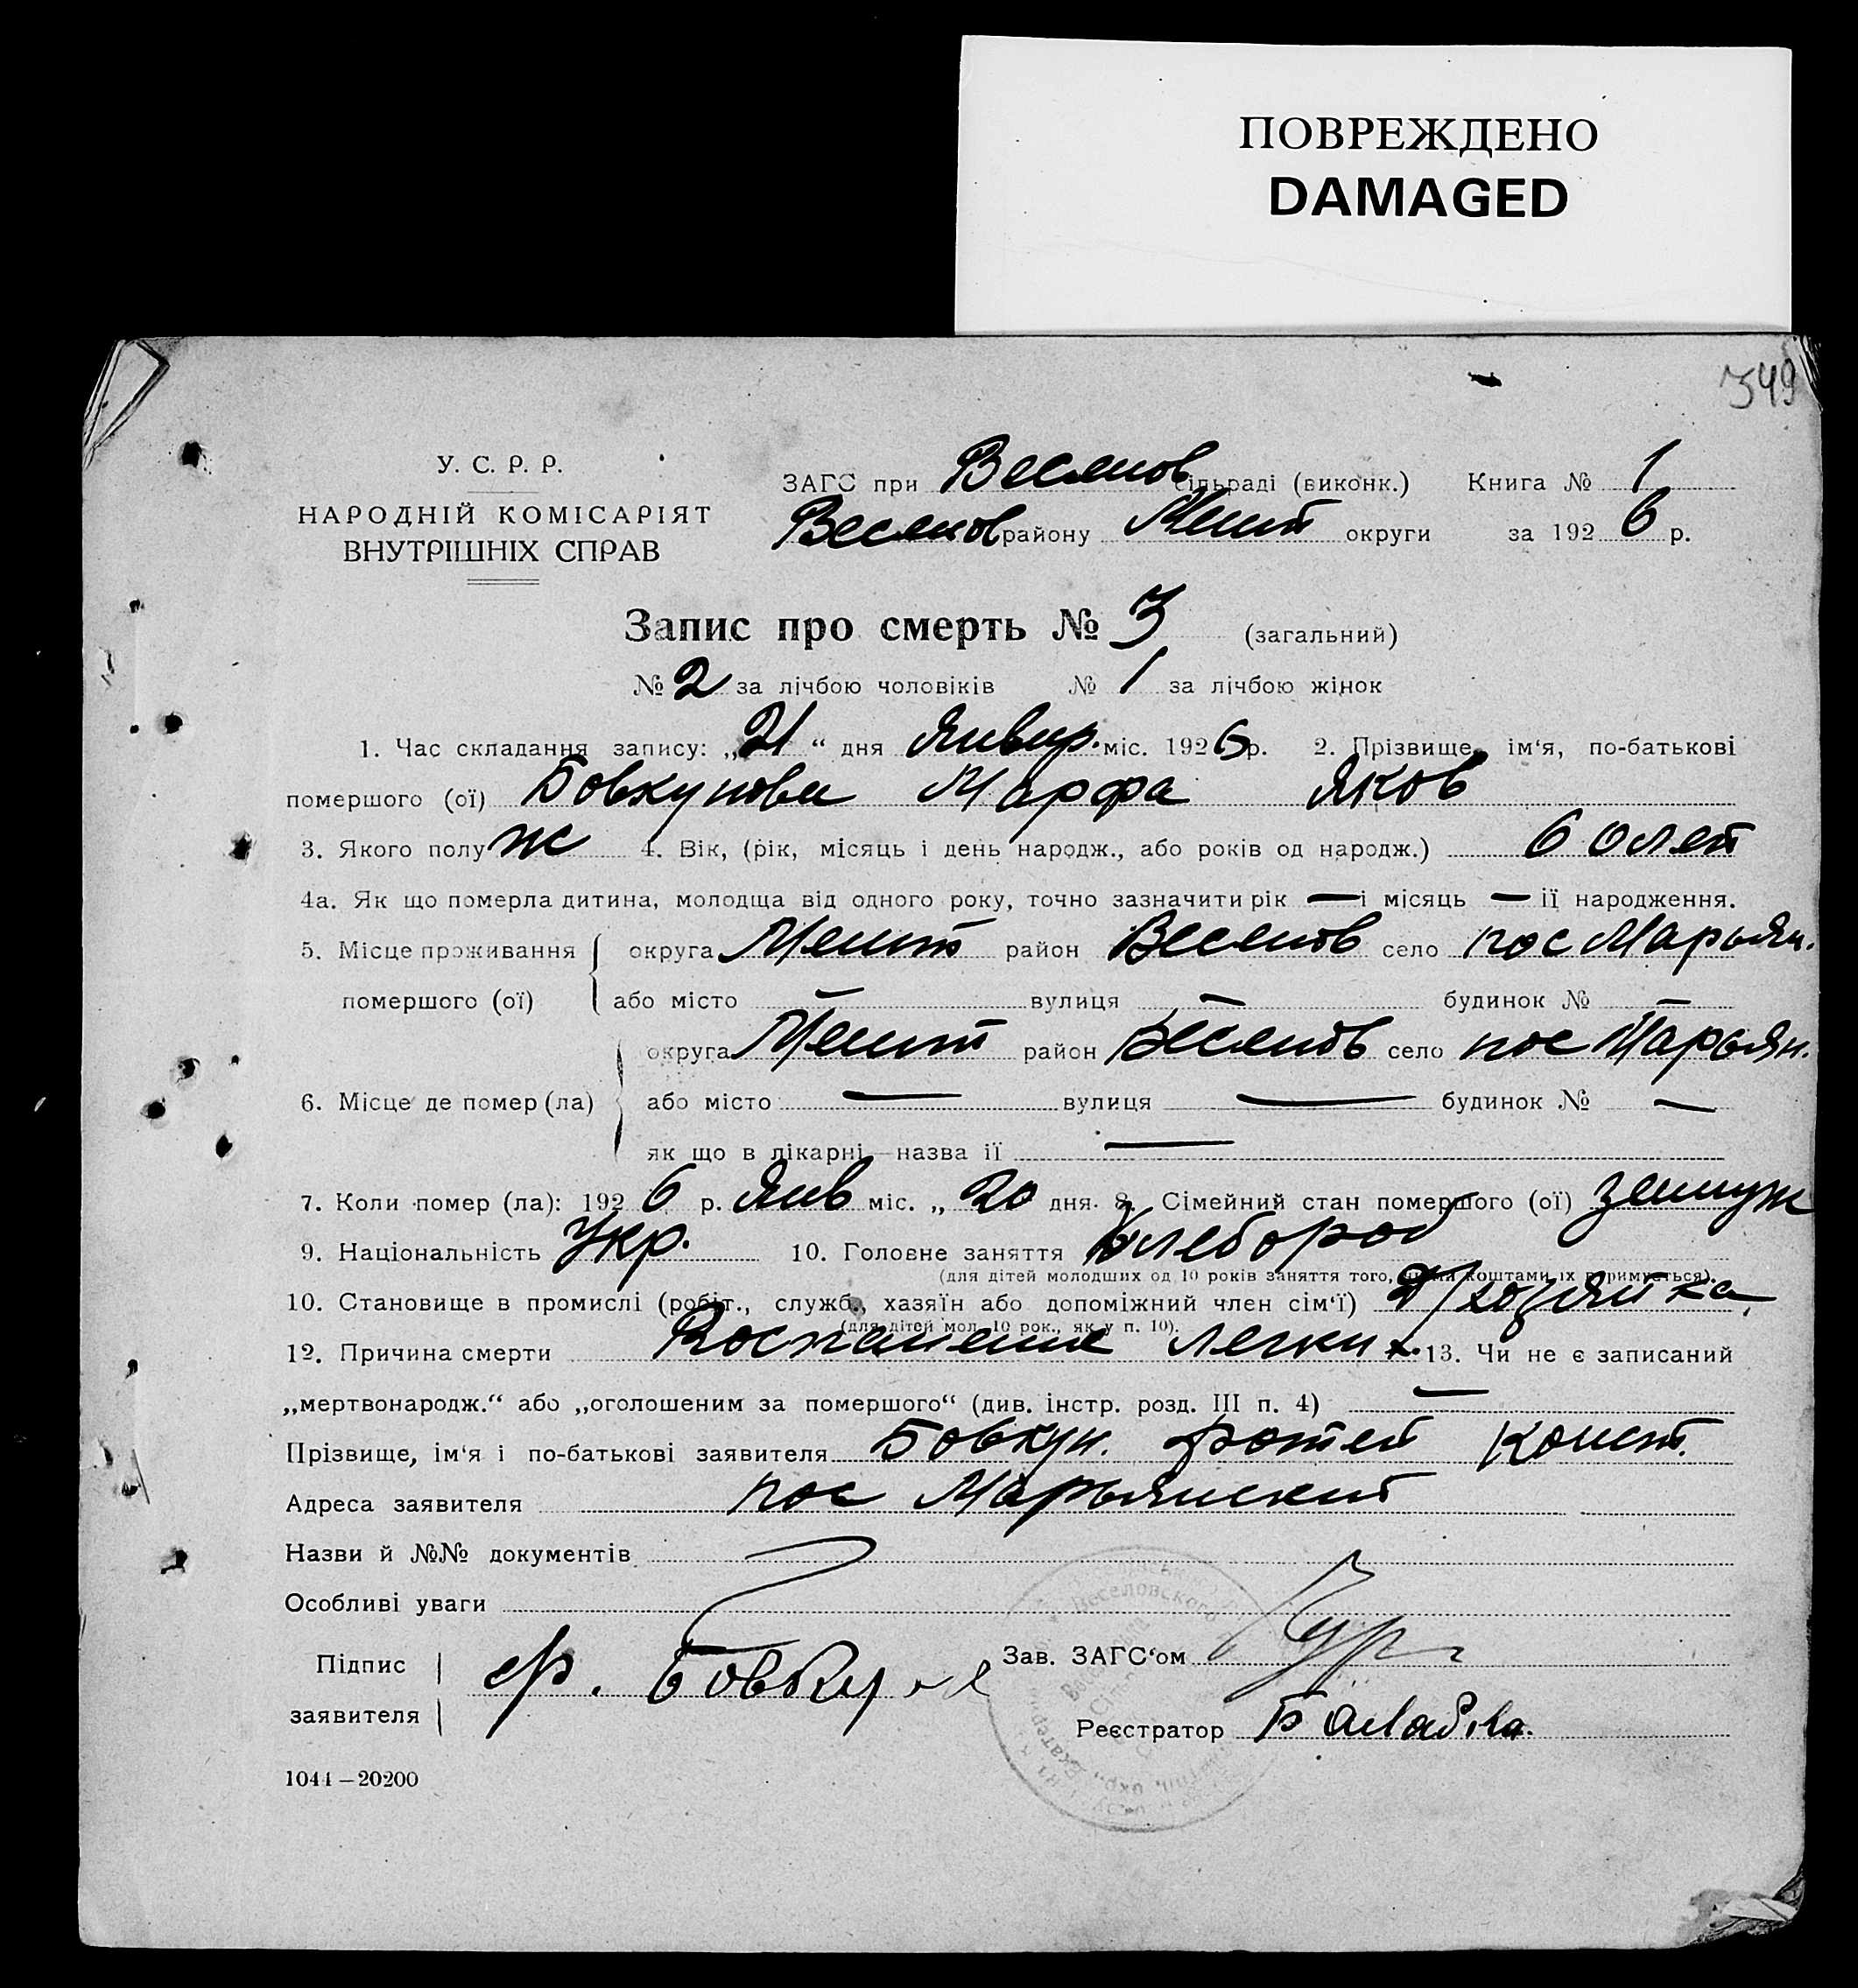 ПОВРЕЖДЕНО
DAMAGED
349
У. С. Р. Р.
НАРОДНІЙ КОМІСАРІЯТ
ВНУТРІШНІХ СПРАВ
ЗАГС при Веселов сільраді (виконк.) Книга № 1
Веселов району Мелит округи за 1926 р.
Запис про смерть № 3 (загальний)
№ 2 за лічбою чоловіків № 1 за лічбою жінок
1. Час складання запису: „21“ дня Январ. міс. 1926 р. 2. Прізвище, ім‘я, по-батькові
помершого (ої) Бовкунова Марфа Яков
3. Якого полу ж 4. Вік, (рік, місяць і день народж., або років од народж.) 60 лет
4а. Як що померла дитина, молодща від одного року, точно зазначити рік — і місяць — її народження.
5. Місце проживання округа Мелит район Веселов село пос Марьян.
помершого (ої) або місто — вулиця — будинок № —
округа Мелит район Веселов село пос Марьян.
6. Місце де помер (ла) або місто — вулиця — будинок № —
як що в лікарні — назва її —
7. Коли помер (ла): 1926 р. Янв міс. „ 20 дня. 8. Сімейний стан помершого (ої) замуж
9. Національність Укр. 10. Головне заняття хлебороб
(для дітей молодших од 10 років заняття того, чиїми коштами їх втримується).
10. Становище в промислі (робіт., служб., хазяїн або допоміжний член сім‘ї) Д/хозяйка
(для дітей мол. 10 рок., як у п. 10).
12. Причина смерти Воспаление легких. 13. Чи не є записаний
„мертвонародж.“ або „оголошеним за помершого“ (див. інстр. розд. III п. 4) —
Прізвище, ім‘я і по-батькові заявителя Бовкун. Фотей Конст.
Адреса заявителя пос Марьянский
Назви й №№ документів
Особливі уваги
Підпис заявителя Ф. Бовкун
Зав. ЗАГС‘ом
Веселовского
Реєстратор
1044—20200